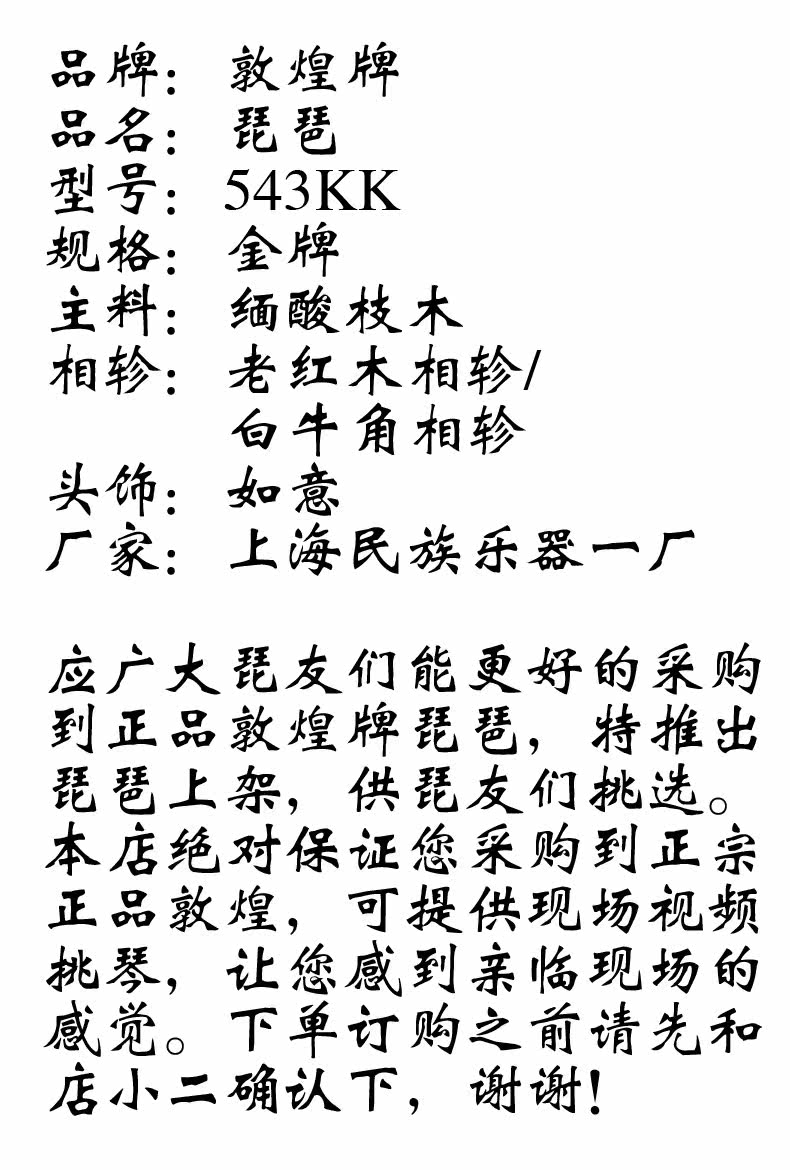 品牌：敦煌牌
品名：琵琶
型号：543KK
规格：金牌
主料：缅酸枝木
相轸：老红木相轸/
白牛角相轸
头饰：如意
厂家：上海民族乐器一厂
应广大琵友们能更好的采购
到正品敦煌牌琵琶，特推出
琵琶上架，供琵友们挑选。
本店绝对保证您采购到正宗
正品敦煌，可提供现场视频
挑琴，让您感到亲临现场的
感觉。下单订购之前请先和
店小二确认下，谢谢！